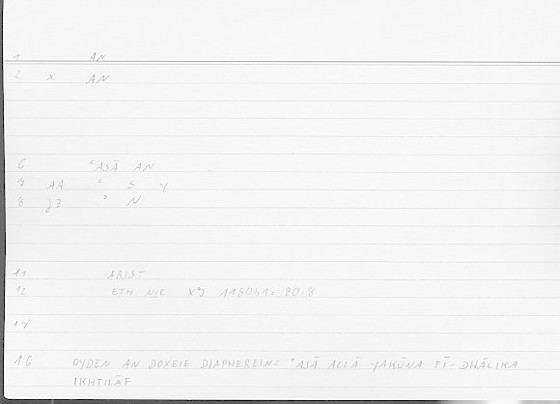 1 AN
2 X AN
6 ʿASĀ AN
7 AA ʿ S Y
8 JZ ʾ N
11 ARIST
12 ETH NIC 1180b1= 80.8
14
16 OYDEN AN DOXEIE DIAPHEREIN= ʿASĀ ALLĀ YAKŪNA FĪ-DHĀLIKA
IKHTILĀF